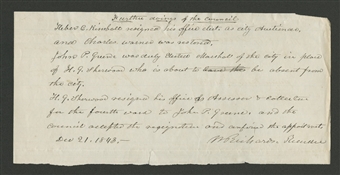 Further doings of the Council
Heber C. Kimball resigned his office as city Auditor
and Charles Warner was
John P. Greene was duly elected Marshal of the city in place
of H. G. Sherwood who is about to be absent from
the city.
H. G. Sherwood resigned his office of Assessor & collector
for the fourth ward to John P. Greene and the
council accepted the resignation and confirm the appointment.
Dec 21. 1843.—
W Richards, Recorder